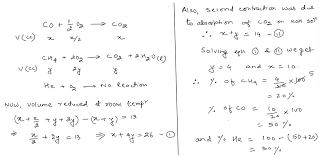 CO + 1/2 O₂ → CO₂
V(cc) x x/2 x
CH₄ + 2O₂ → CO₂ + 2H₂O(ℓ)
V(cc) y 2y y
He + O₂ → No reaction
Now, volume reduced at room tempr
(x + x/2 + y + 2y) - (x + y) = 13
⇒ x/2 + 2y = 13 ⇒ x + 4y = 26 - ①
Also, second contraction was due
to absorption of CO₂ on KOH solⁿ
∴ x + y = 14 - ②
Solving eqn ① & ② we get
y = 4 and x = 10
∴ % of CH₄ = 4/20 × 100
= 20%
% of CO = 10/20 × 100
= 50%
and % He = 100 - (50+20)
= 30%